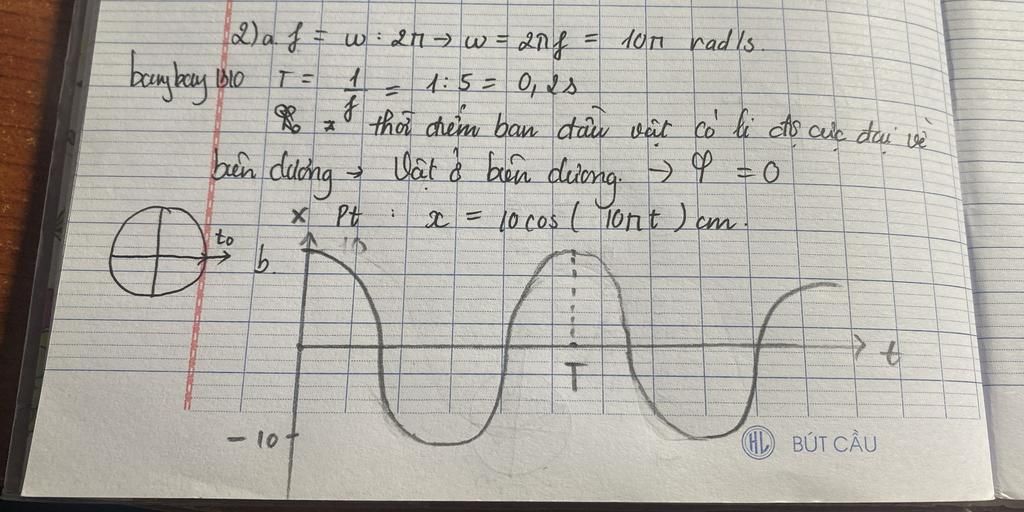 2) a. f = ω : 2π → ω = 2πf = 10π rad/s.
T = 1/f = 1 : 5 = 0,2s
thời điểm ban đầu vật có li độ cực đại về
biên dương → Vật ở biên dương. → φ = 0
x Pt : x = 10 cos ( 10πt ) cm.
t₀
b.
10
t
T
-10
HL BÚT CẦU